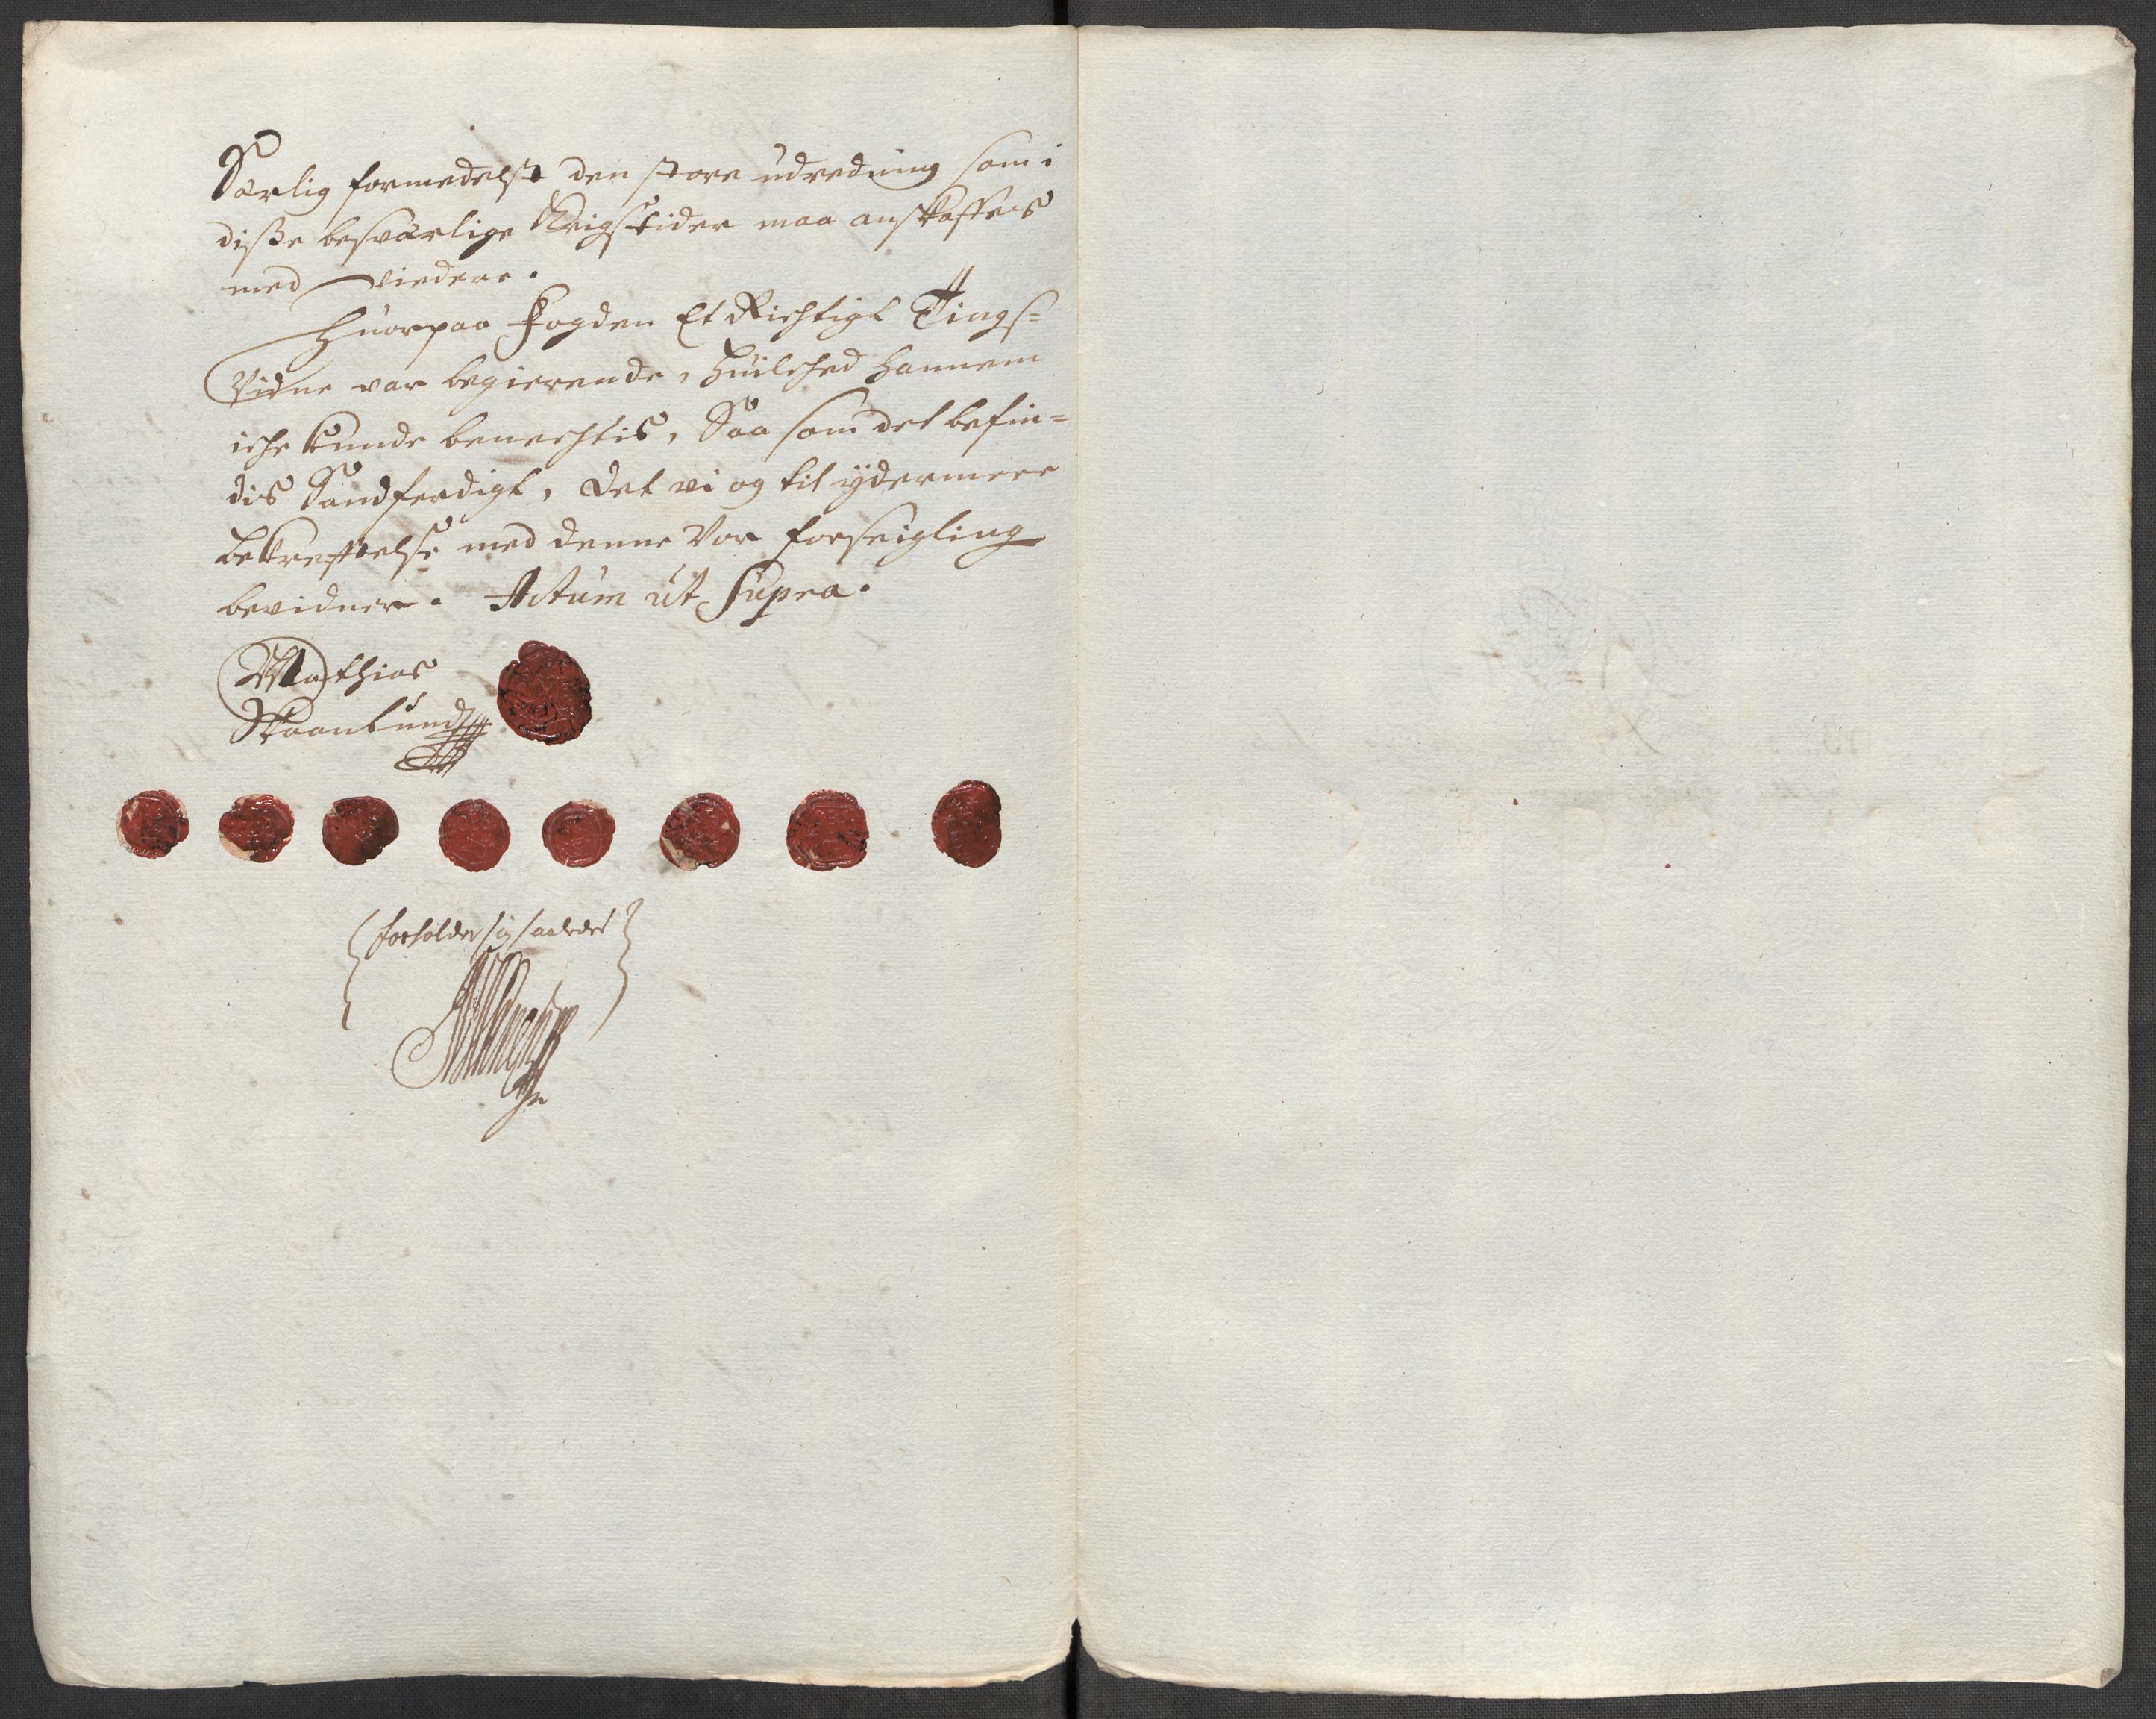 Særlig formedelst den store udredning som i
diße besværlige Krigstider maa anskaffes
med viedere.
Huorpaa Fogden Et Richtigt Tings=
Vidne var begierende, huilched hannem
iche kunde benechtis, Saa som det befin=
dis Sandferdigt, det vi og til ydermeere
bekreftelse med denne Vor forseigling
bevidner. Actum ut Supra.
Mathias
Skaanlund
forholder sig saaledes